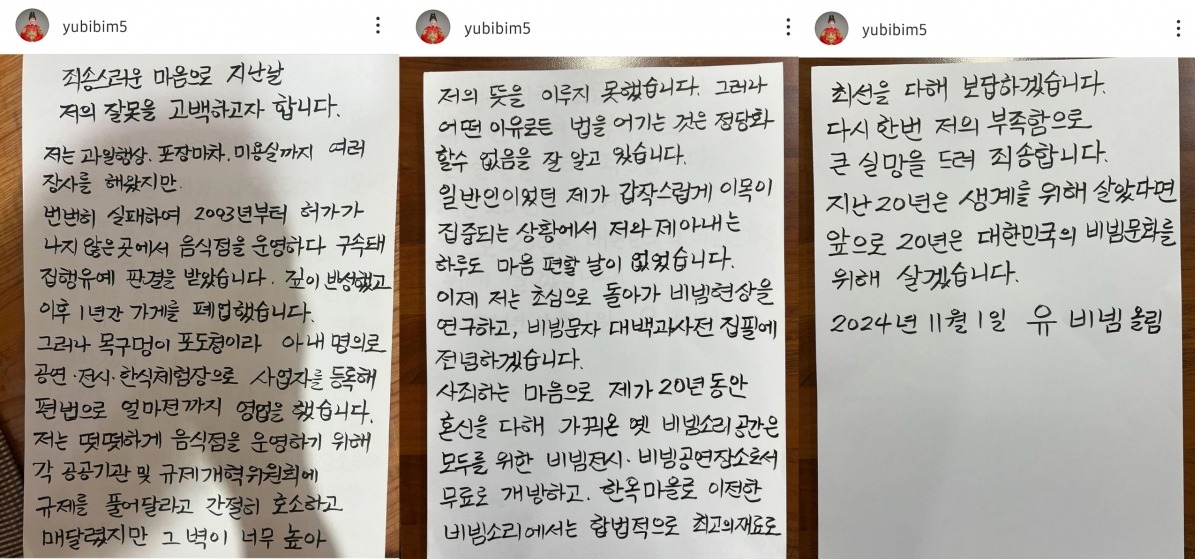 yubibim5
죄송스러운 마음으로 지난날
저의 잘못을 고백하고자 합니다.
저는 과일행상. 포장마차. 미용실까지 여러
장사를 해왔지만.
번번히 실패하여 2003년부터 허가가
나지 않은 곳에서 음식점을 운영하다 구속돼
집행유예 판결을 받았습니다. 깊이 반성했고
이후 1년간 가게를 폐업했습니다.
그러나 목구멍이 포도청이라 아내 명의로
공연·전시·한식체험장으로 사업자를 등록해
편법으로 얼마전까지 영업을 했습니다.
저는 떳떳하게 음식점을 운영하기 위해
각 공공기관 및 규제개혁위원회에
규제를 풀어달라고 간절히 호소하고
매달렸지만 그 벽이 너무 높아
yubibim5
저의 뜻을 이루지 못했습니다. 그러나
어떤 이유로든 법을 어기는 것은 정당화
할수 없음을 잘 알고 있습니다.
일반인이었던 제가 갑작스럽게 이목이
집중되는 상황에서 저와 제 아내는
하루도 마음 편할 날이 없었습니다.
이제 저는 초심으로 돌아가 비빔현상을
연구하고, 비빔문자 대백과사전 집필에
전념하겠습니다.
사죄하는 마음으로 제가 20년 동안
혼신을 다해 가꿔온 옛 비빔소리 공간은
모두를 위한 비빔전시·비빔공연장소로서
무료로 개방하고. 한옥마을로 이전한
비빔소리에서는 합법적으로 최고의 재료로
yubibim5
최선을 다해 보답하겠습니다.
다시 한번 저의 부족함으로
큰 실망을 드려 죄송합니다.
지난 20년은 생계를 위해 살았다면
앞으로 20년은 대한민국의 비빔문화를
위해 살겠습니다.
2024년 11월 1일 유 비빔 올림